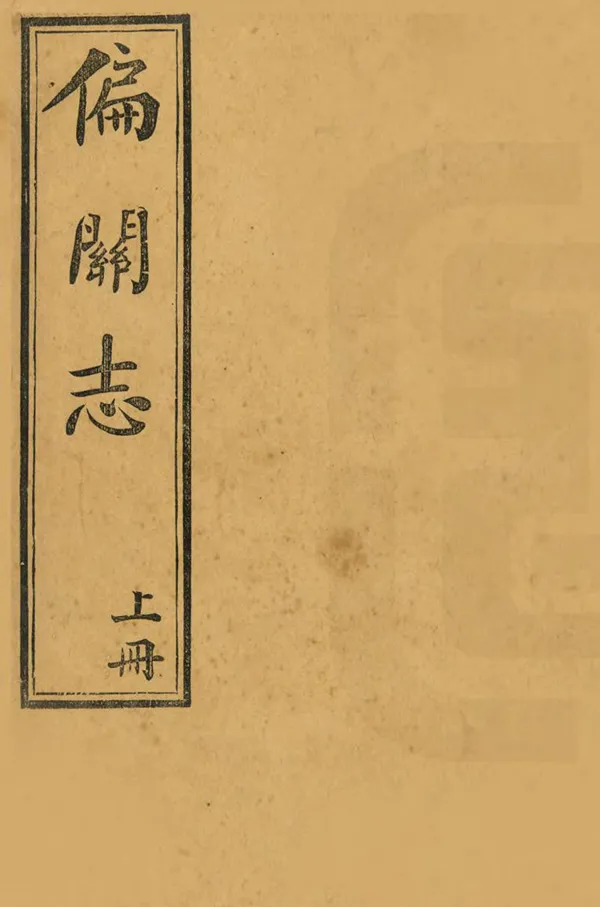 偏關志
上冊